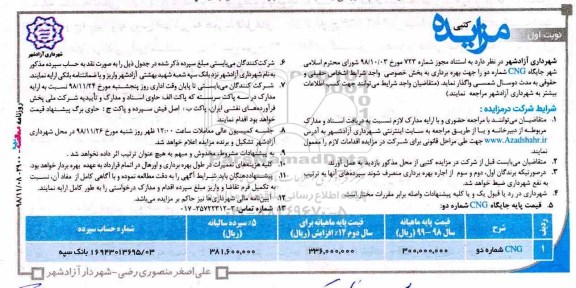 نوبت اول
مزایده
کتبی
شهرداری آزادشهر
شهرداری آزادشهر در نظر دارد به استناد مجوز شماره ۷۲۳ مورخ ۹۸/۱۰/۰۳ شورای محترم اسلامی
شهر جایگاه CNG شماره دو را جهت بهره برداری به بخش خصوصی واجد شرایط اشخاص حقیقی و
حقوقی به مدت دوسال شمسی واگذار نماید. (متقاضیان واجد شرایط می توانند جهت کسب اطلاعات
بیشتر به شهرداری آزادشهر مراجعه نمایند)
شرایط شرکت درمزایده :
۱. متقاضیان می‌توانند با مراجعه حضوری و با ارایه مدارک لازم نسبت به دریافت اسناد و مدارک
مربوطه از دبیرخانه و یا از طریق مراجعه به سایت اینترنتی شهرداری آزادشهر به آدرس
www.Azadshahr.ir جهت طی مراحل قانونی برای شرکت در مزایده اقدامات لازم را معمول
نمایند
۲. متقاضیان می‌بایست قبل از شرکت در مزایده کتبی از محل مذکور بازدید به عمل آورند.
۳. درصورتیکه برندگان اول، دوم و سوم از اجاره بهره برداری منصرف شوند سپرده‌های آنها به ترتیب
به نفع شهرداری ضبط خواهد شد.
۴. شهرداری در رد یا قبول یک و یا کلیه پیشنهادات واصله برابر مقررات مختار است.
۵. قیمت پایه جایگاه CNG شماره دو:
۶. شرکت‌کنندگان می‌بایستی مبلغ سپرده ذکر شده در جدول ذیل را به صورت نقد به حساب سپرده مذکور
به نام شهرداری آزادشهر نزد بانک سپه شعبه شهید بهشتی آزادشهر واریز و یا ضمانتنامه بانکی ارایه نمایند.
۷. شرکت کنندگان می‌بایستی تا پایان وقت اداری روز پنجشنبه مورخ ۹۸/۱۱/۲۴ نسبت به ارایه
مدارک در سه پاکت سربسته که پاکت الف حاوی اسناد و مدارک و تأییدیه شرکت ملی پخش
فرآورده‌های نفتی ایران، پاکت ب، اصل فیش سپرده و پاکت ج : حاوی برگ پیشنهاد قیمت
خواهد بود اقدام نمایند.
۸. جلسه کمیسیون عالی معاملات ساعت ۱۲:۰۰ ظهر روز شنبه مورخ ۹۸/۱۱/۲۶ در محل شهرداری
آزادشهر تشکیل و برنده مزایده اعلام خواهد شد.
۹. به پیشنهادات مشروط، مخدوش و مبهم به هیچ عنوان ترتیب اثر داده نخواهد شد.
۱۰. کلیه هزینه‌های تعمیرات در طول بهره‌برداری و اورهال در اتمام قرارداد به عهده بهره بردار خواهد بود.
۱۱. پیشنهاددهندگان باید شرایط آگهی را به دقت مطالعه نموده و با آگاهی کامل از مفاد آن، نسبت
به تکمیل فرم تقاضا و واریز مبلغ سپرده اقدام و مدارک درخواستی را به طور کامل ارایه نمایند.
۱۲. آیین‌نامه مالی شهرداری‌ها نیز حاکم بر مزایده می‌باشد.
۱۳. شماره تماس:
ردیف شرح قیمت پایه ماهیانه سال ۹۸-۹۹ (ریال) قیمت پایه ماهیانه برای سال دوم ۱۲٪ افزایش (ریال) ۵٪ سپرده سالیانه (ریال) شماره حساب سپرده
۱ CNG شماره دو ۳۰۰,۰۰۰,۰۰۰ ۳۳۶,۰۰۰,۰۰۰ ۳۸۱,۶۰۰,۰۰۰ ۱۶۹۴۳۰۱۳۶۹۵/۰۳ بانک سپه
علی اصغر منصوری رضی - شهردار آزادشهر